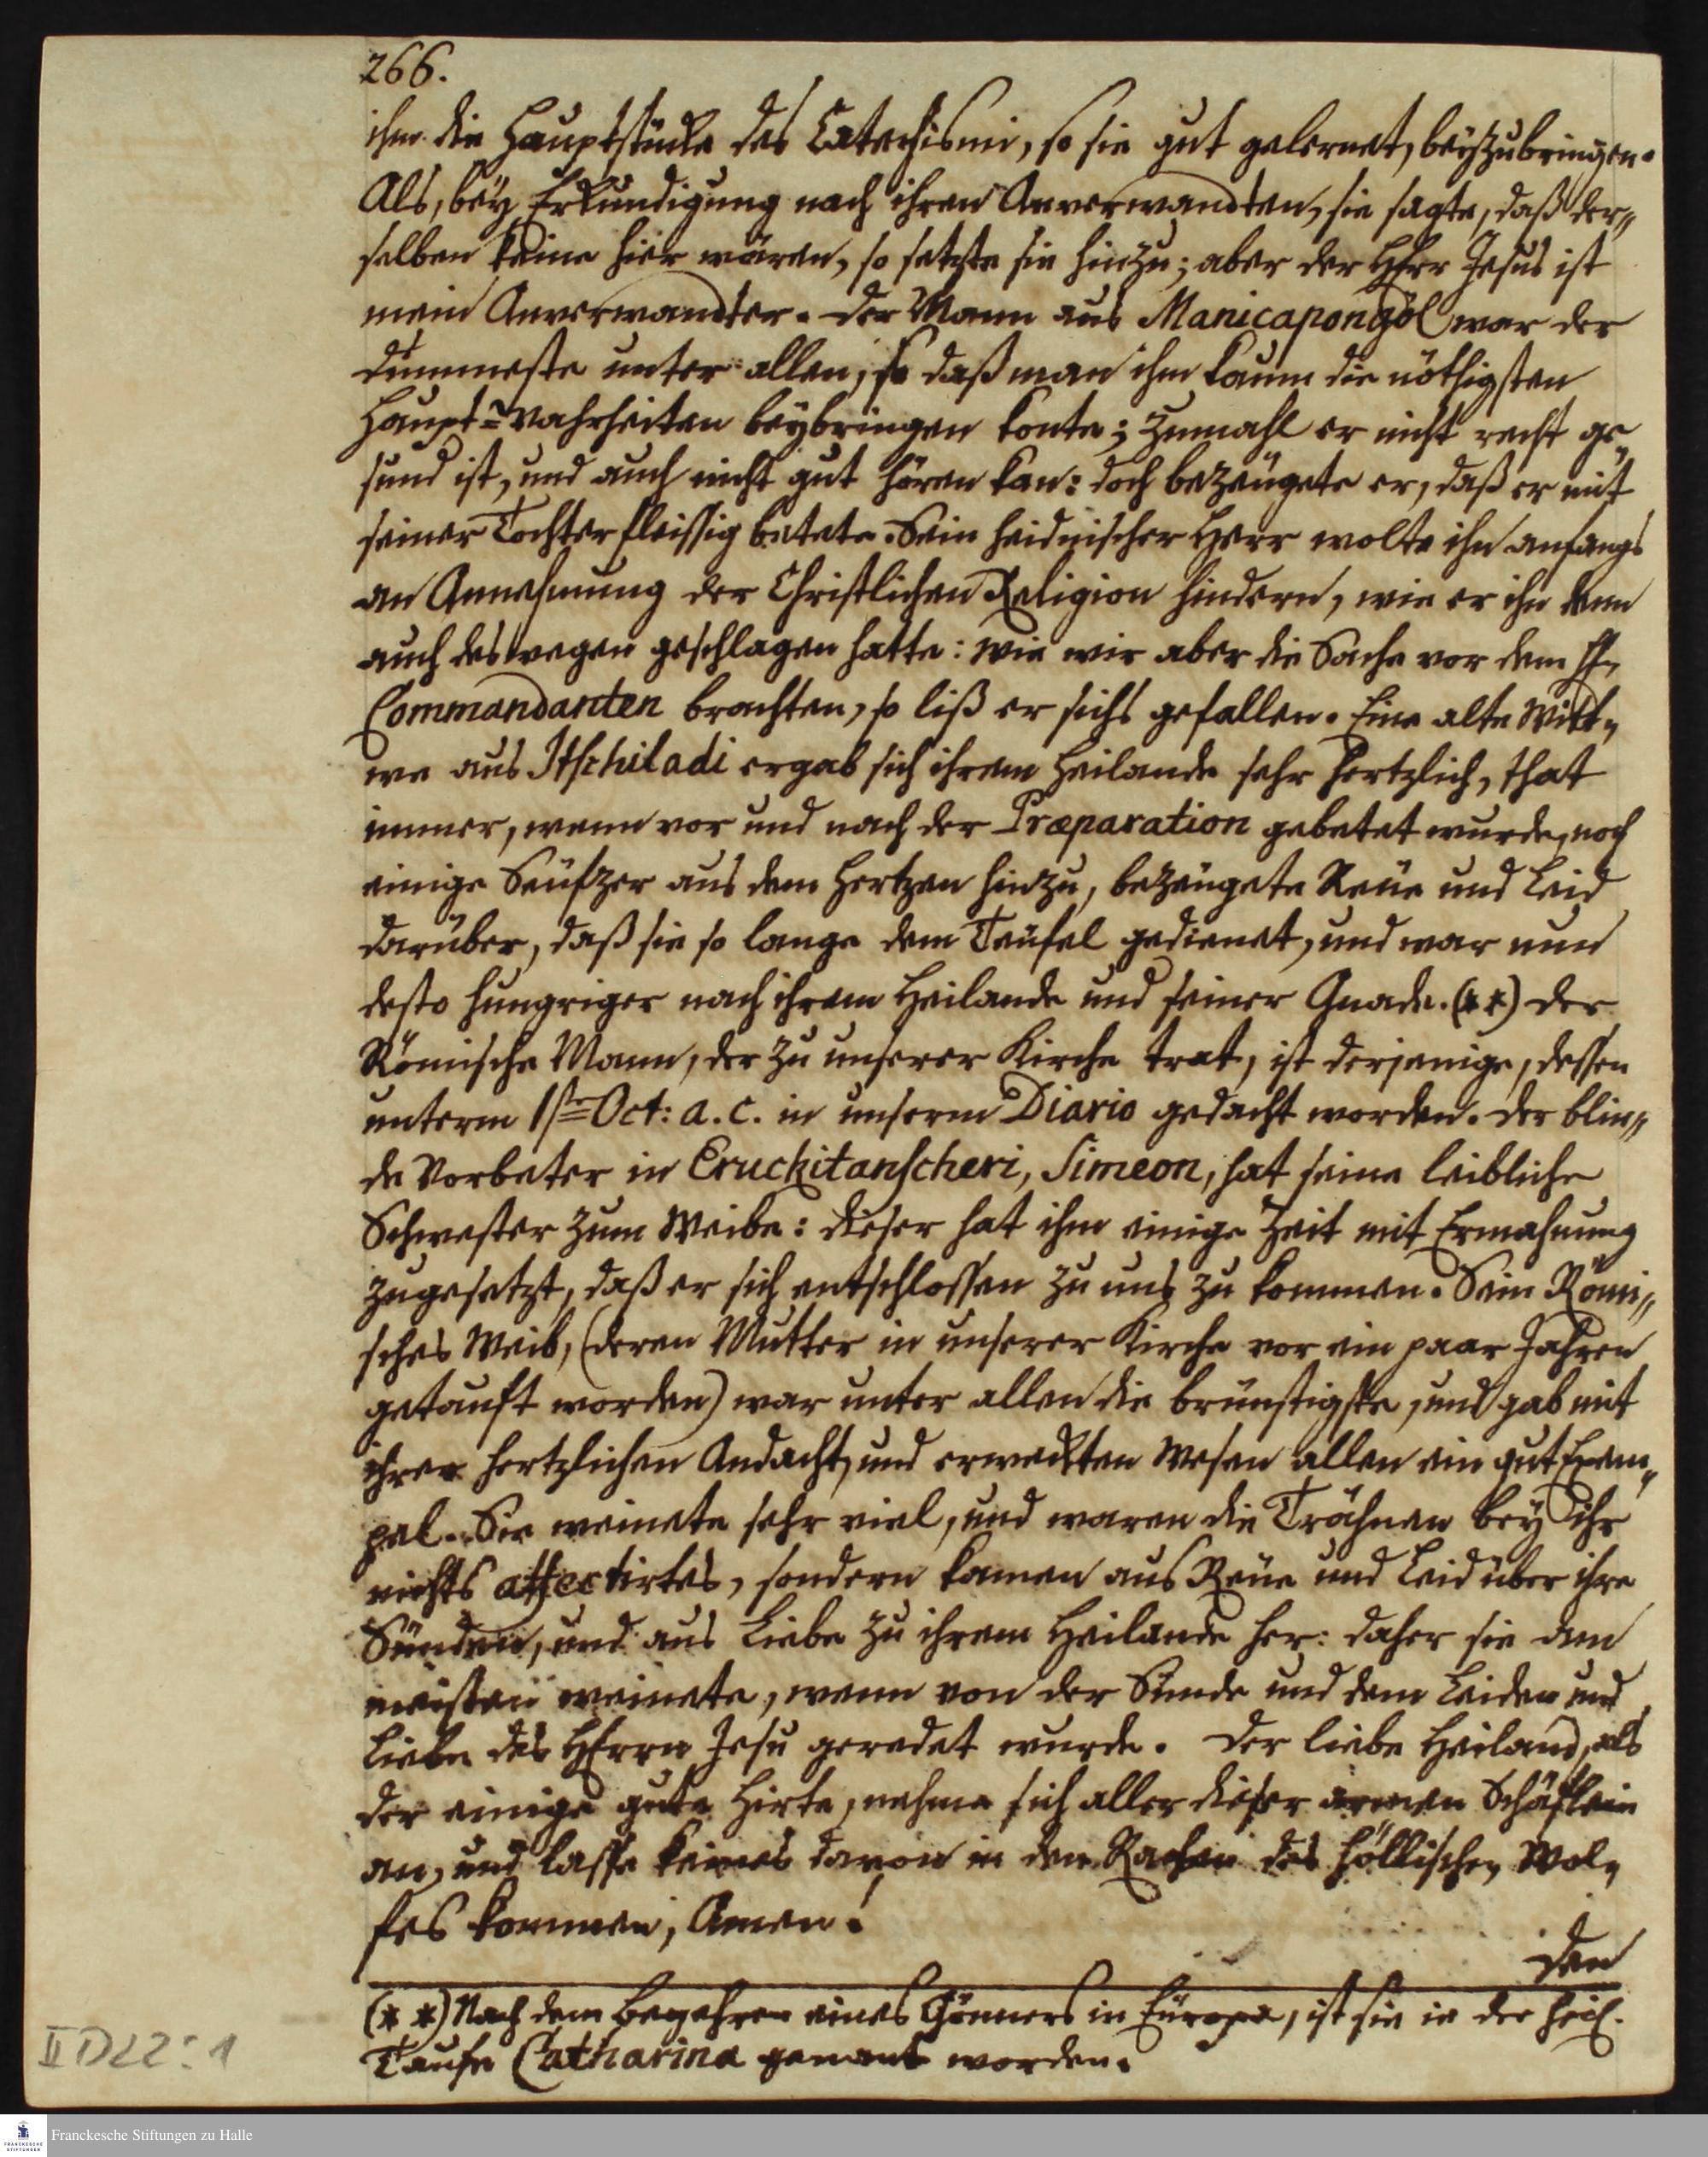 266.
ihm die Hauptstücke des Catechismi, so sie gut gelernet, beyzubringen.
Als, bey Erkundigung nach ihren Anverwandten, sie sagte, daß der„
selben keine hier wären, so setzte sie hinzu; aber der HErr Jesus ist
mein Anverwandter. Der Mann aus Manicapongöl war der
dümmeste unter allen, so daß man ihm kaum die nöthigsten
Haupt=Wahrheiten beybringen konte; zumahl er nicht recht ge„
sund ist, und auch nicht gut hören kan: doch bezeugete er, daß er mit
seiner Tochter fleissig betete. Sein heidnischer Herr wolte ihn anfangs
an Annehmung der Christlichen Religion hindern, wie er ihn denn
auch deswegen geschlagen hatte: wie wir aber die Sache vor dem H.
Commandanten brachten, so liß er sichs gefallen. Eine alte Witt„
we aus Itschiladi ergab sich ihrem Heilande sehr hertzlich, that
immer, wenn vor und nach der Præparation gebetet wurde, noch
einige Seufzer aus dem Hertzen hinzu, bezeugete Reue und Leid
darüber, daß sie so lange dem Teufel gedienet, und war nun
desto hungriger nach ihrem Heilande und seiner Gnade. (**) Der
Römische Mann, der zu unserer Kirche trat, ist derjenige, dessen
unterm 1sten Oct: a. c. in unserm Diario gedacht worden. Der blin„
de Vorbeter in Eruckitanscheri, Simeon, hat seine leibliche
Schwester zum Weibe: dieser hat ihm einige Zeit mit Ermahnung
zugesetzt, daß er sich entschlossen zu uns zu kommen. Sein Römi„
sches Weib, (deren Mutter in unserer Kirche vor ein paar Jahren
getauft worden) war unter allen die brünstigste, und gab mit
ihrer hertzlichen Andacht, und erweckten Wesen allen ein gut Exem„
pel. Sie weinete sehr viel, und waren die Trähnen bey ihr
nichts affectirtes, sondern kamen aus Reue und Leid über ihre
Sünden, und aus Liebe zu ihrem Heilande her: daher sie am
meisten weinete, wenn von der Sünde und dem Leiden und
Liebe des HErrn Jesu geredet wurde. Der liebe Heiland, als
der einige gute Hirte, nehme sich aller dieser armen Schäflein
an, und lasse keines davon in den Rachen des höllischen Wol„
fes kommen, Amen!
Den
(**) Nach dem Begehren eines Gönners in Europa, ist sie in der heil.
Taufe Catharina genant worden.
II D22:1
FRANCKESCHE STIFTUNGEN
Franckesche Stiftungen zu Halle